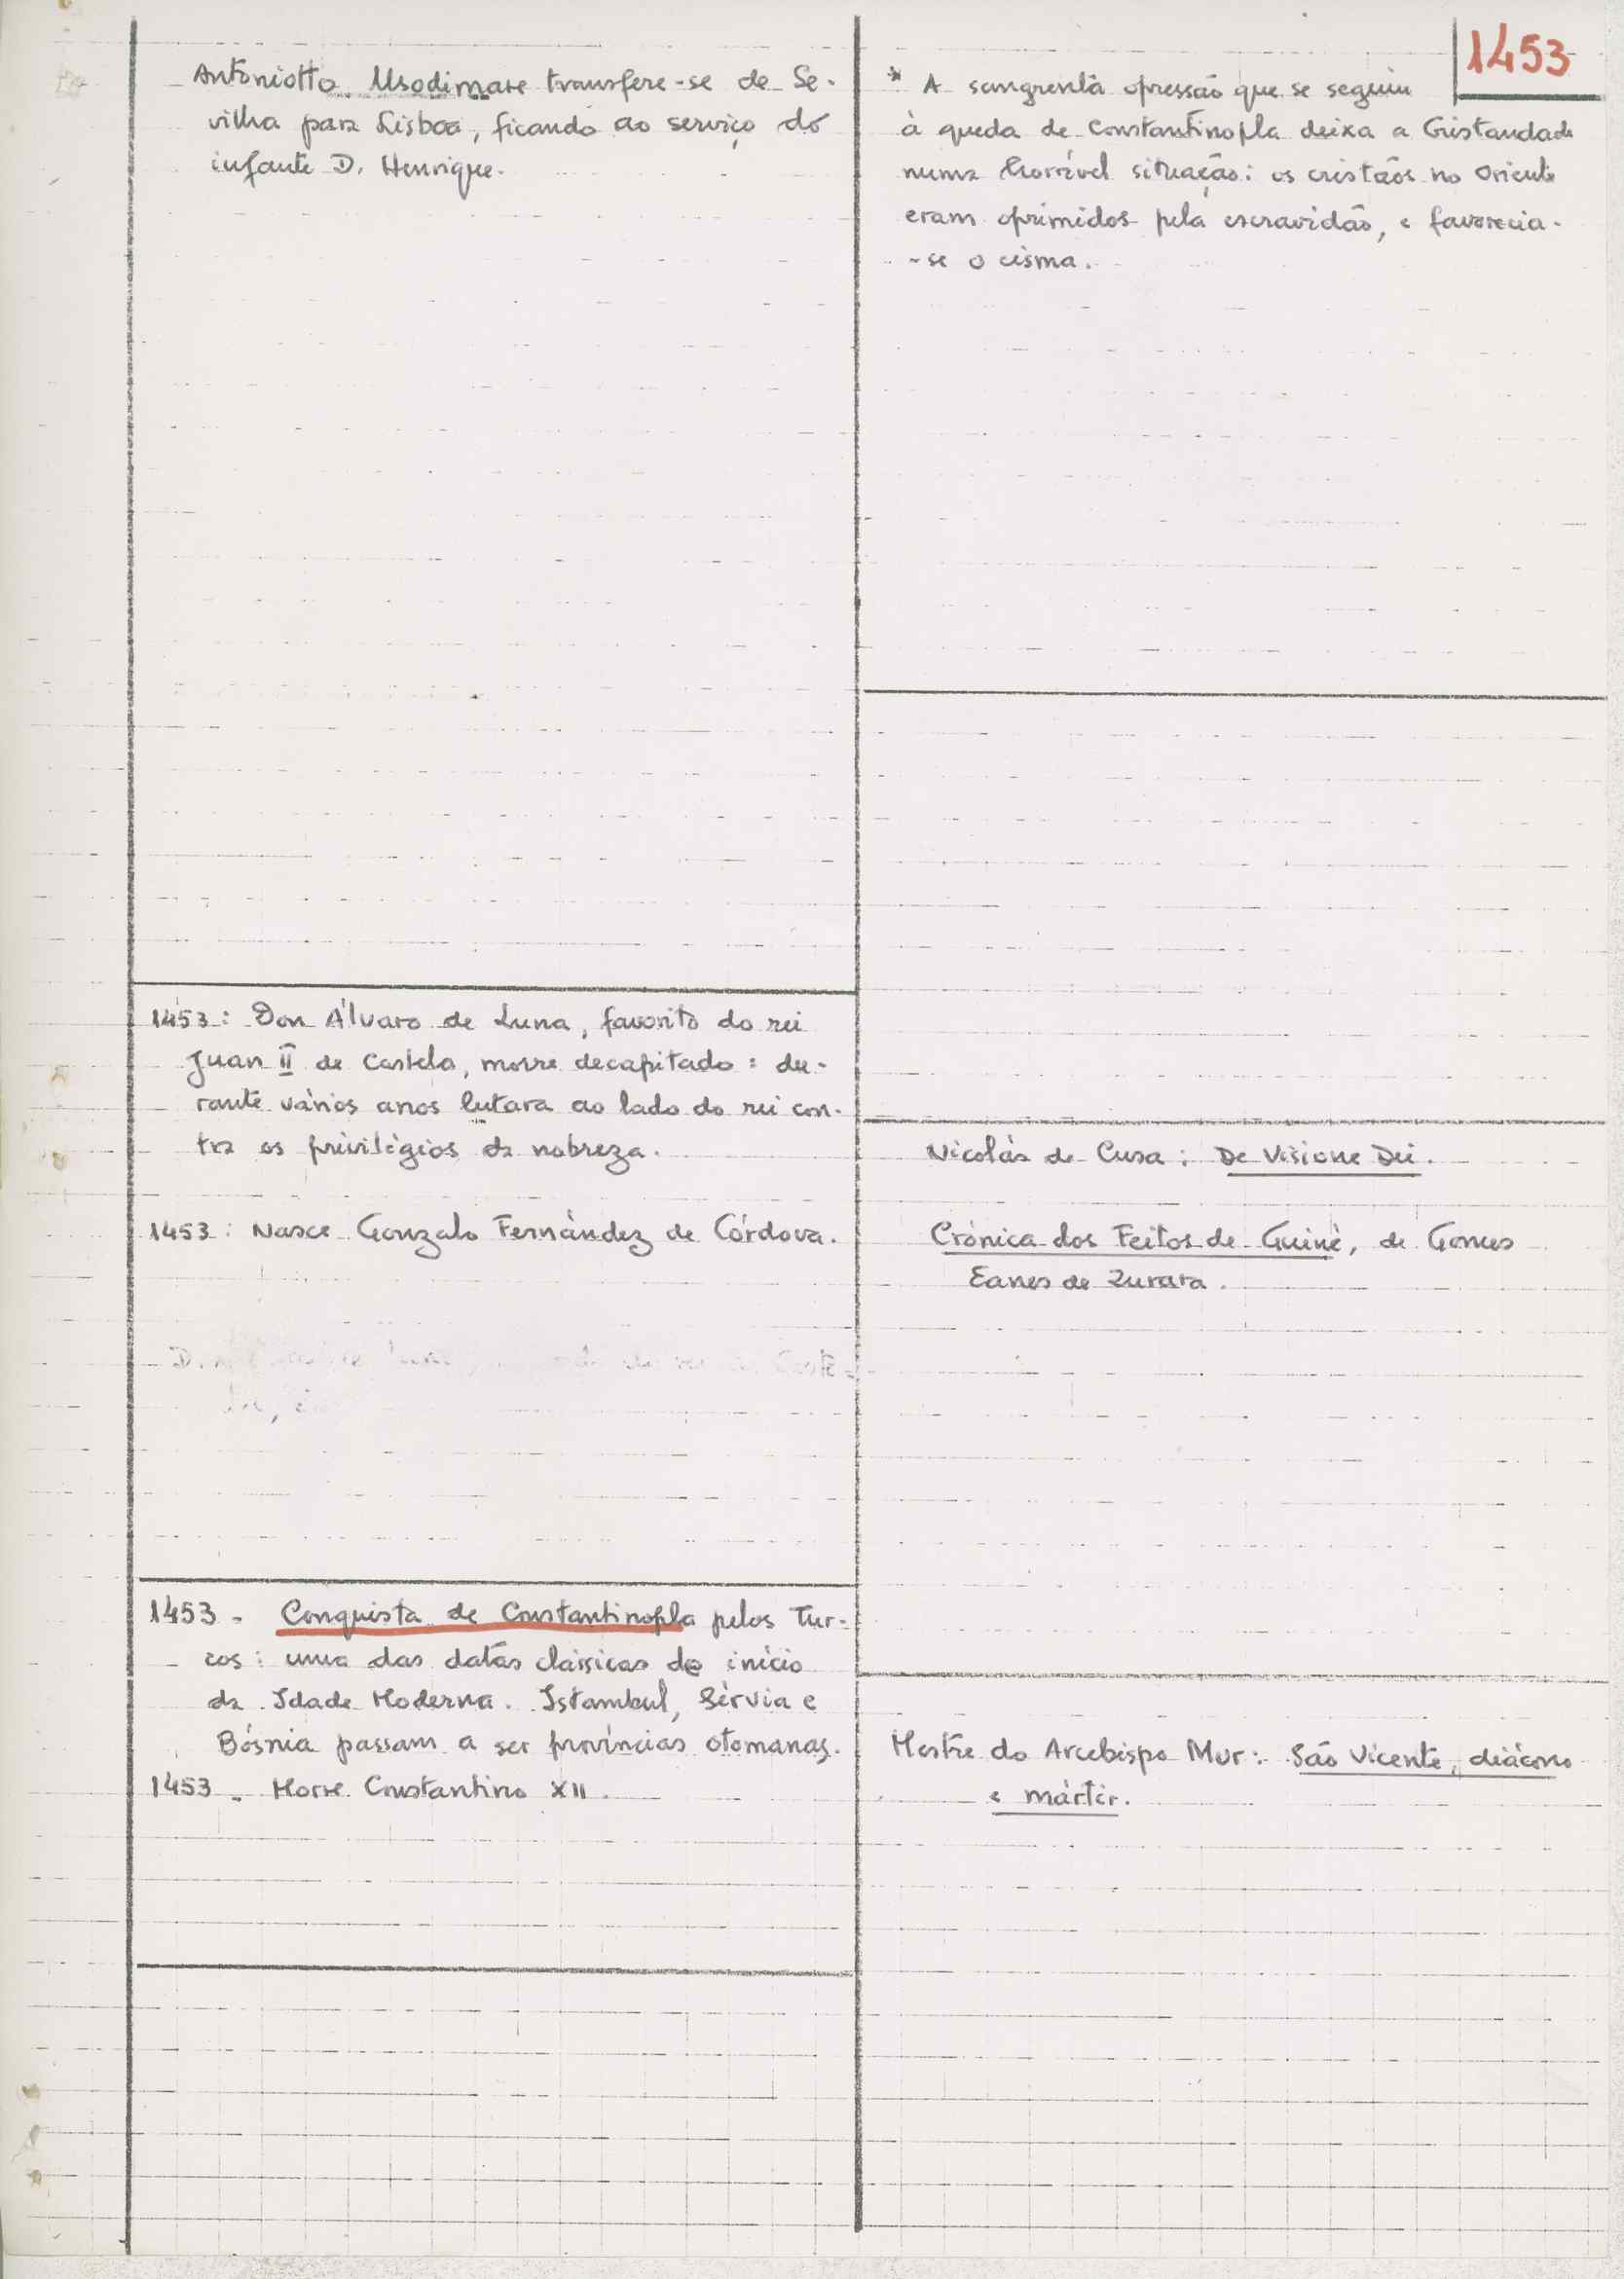 1453
Antoniotto Usodimare transfere-se de Se-
vilha para Lisboa, ficando ao serviço do
infante D. Henrique.
1453: Don Álvaro de Luna, favorito do rei
Juan II de Castela, morre decapitado: du-
rante vários anos lutara ao lado do rei con-
tra os privilégios da nobreza.
1453: Nasce Gonzalo Fernández de Córdova.
1453 - Conquista de Constantinopla pelos Tur-
cos: uma das datas clássicas de início
da Idade Moderna. Istambul, Sérvia e
Bósnia passam a ser províncias otomanas.
1453 - Morre Constantino XII.
* A sangrenta opressão que se seguiu
à queda de Constantinopla deixa a Cristandade
numa horrível situação: os cristãos no Oriente
eram oprimidos pela escravidão, e favorecia-
-se o cisma.
Nicolás de Cusa: De Visione Dei.
Crónica dos Feitos de Guiné, de Gomes
Eanes de Zurara.
Mestre do Arcebispo Mur: São Vicente, diácono
e mártir.